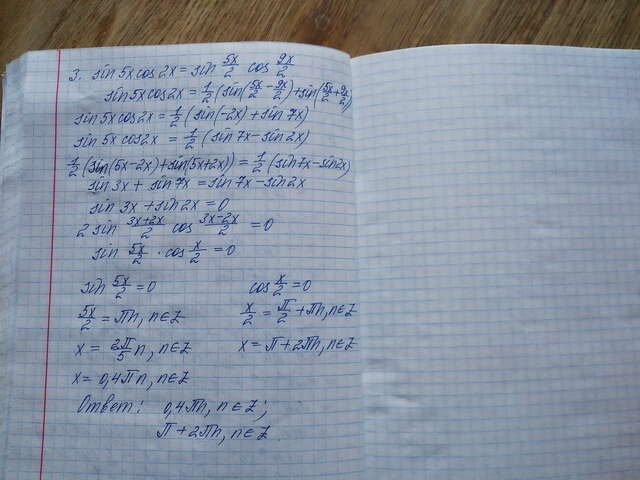 3. sin 5x cos 2x = sin 5x/2 cos 9x/2
sin 5x cos 2x = 1/2 (sin(5x/2 - 9x/2) + sin(5x/2 + 9x/2))
sin 5x cos 2x = 1/2 (sin(-2x) + sin 7x)
sin 5x cos 2x = 1/2 (sin 7x - sin 2x)
1/2 (sin(5x-2x) + sin(5x+2x)) = 1/2 (sin 7x - sin 2x)
sin 3x + sin 7x = sin 7x - sin 2x
sin 3x + sin 2x = 0
2 sin 3x+2x/2 cos 3x-2x/2 = 0
sin 5x/2 · cos x/2 = 0
sin 5x/2 = 0 cos x/2 = 0
5x/2 = πn, n∈Z x/2 = π/2 + πn, n∈Z
x = 2π/5 n, n∈Z x = π + 2πn, n∈Z
x = 0,4πn, n∈Z
Ответ: 0,4πn, n∈Z;
π + 2πn, n∈Z.